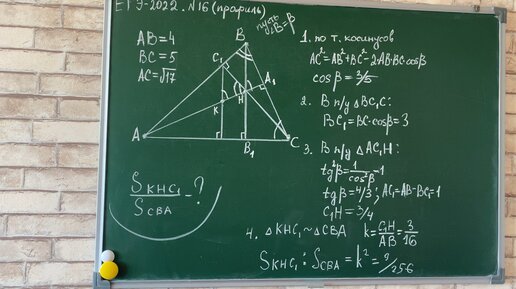 ЕГЭ-2022. №16 (профиль)
пусть
∠B=β
AB=4
BC=5
AC=√17
B
C₁
A₁
H
K
A
B₁
C
S_KHC₁
S_CBA
-?
1. по т. косинусов
AC²=AB²+BC²-2·AB·BC·cosβ
cosβ=3/5
2. В п/у △BC₁C:
BC₁=BC·cosβ=3
3. В п/у △AC₁H:
tg²β=1/cos²β-1
tgβ=4/3; AC₁=AB-BC₁=1
C₁H=3/4
4. △KHC₁~△CBA k=C₁H/AB=3/16
S_KHC₁:S_CBA=k²=9/256